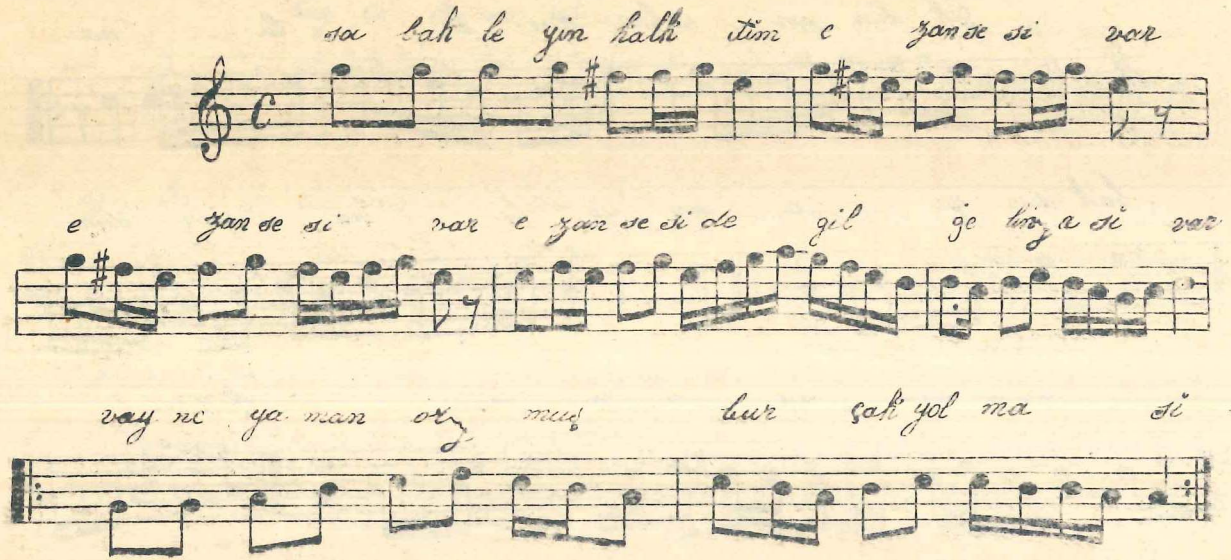 sa bah le yin kalk tim e zan se si var
e zan se si var e zan se si de gil ge linz a si var
vay ne ya man orz muş bur çak yol ma si